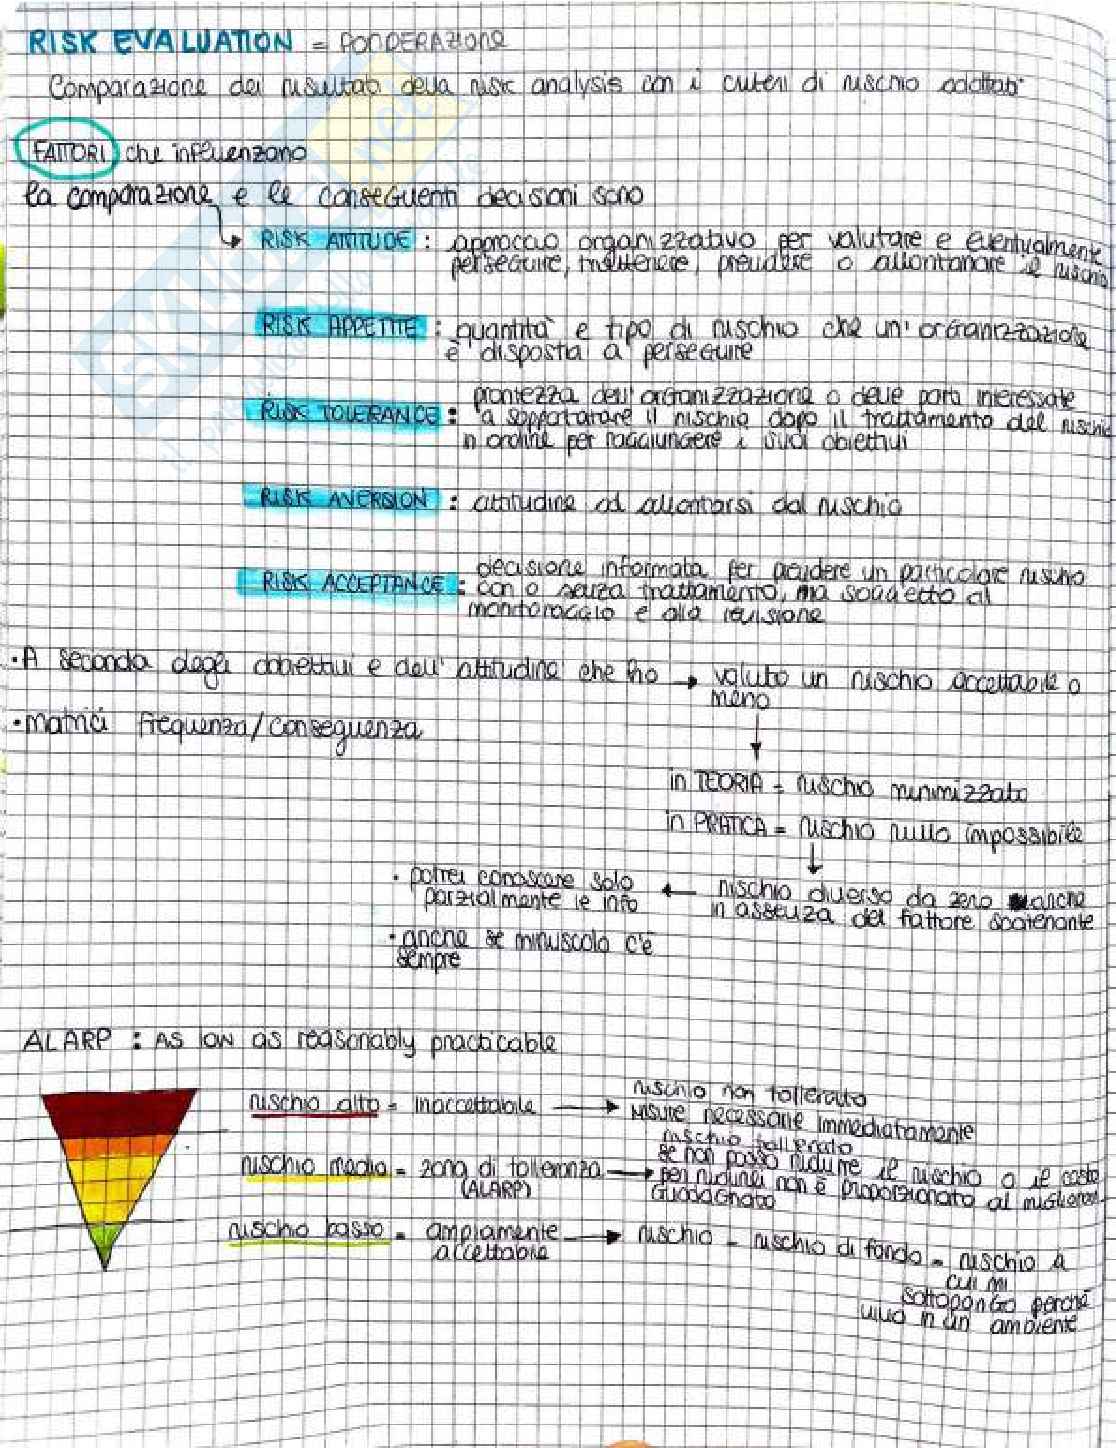 RISK EVALUATION = PONDERAZIONE
Comparazione dei risultati della risk analysis con i criteri di rischio adottati
FATTORI che influenzano
la comparazione e le conseguenti decisioni sono
RISK ATTITUDE : approccio organizzativo per valutare e eventualmente
perseguire, trattenere, prendere o allontanare il rischio
RISK APPETITE : quantità e tipo di rischio che un'organizzazione
è disposta a perseguire
prontezza dell'organizzazione o delle parti interessate
RISK TOLERANCE : a sopportare il rischio dopo il trattamento del rischio
in ordine per raggiungere i suoi obiettivi
RISK AVERSION : attitudine ad allontarsi dal rischio
decisione informata per prendere un particolare rischio
RISK ACCEPTANCE : con o senza trattamento, ma soggetto al
monitoraggio e alla revisione
• A seconda degli obbiettivi e dell'attitudine che ho → valuto un rischio accettabile o
meno
• matrici frequenza/conseguenza
in TEORIA = rischio minimizzato
in PRATICA = rischio nullo impossibile
• potrei conoscere solo ← rischio diverso da zero anche
parzialmente le info in assenza del fattore scatenante
• anche se minuscolo c'è
sempre
ALARP : AS low as reasonably practicable
rischio alto = inaccettabile → rischio non tollerato
misure necessarie immediatamente
rischio tollerato
se non posso ridurre il rischio o il costo
rischio medio = zona di tolleranza → per ridurlo non è proporzionato al miglioram.
(ALARP) guadagnato
rischio basso = ampiamente → rischio = rischio di fondo = rischio a
accettabile cui mi
sottopongo perché
vivo in un ambiente